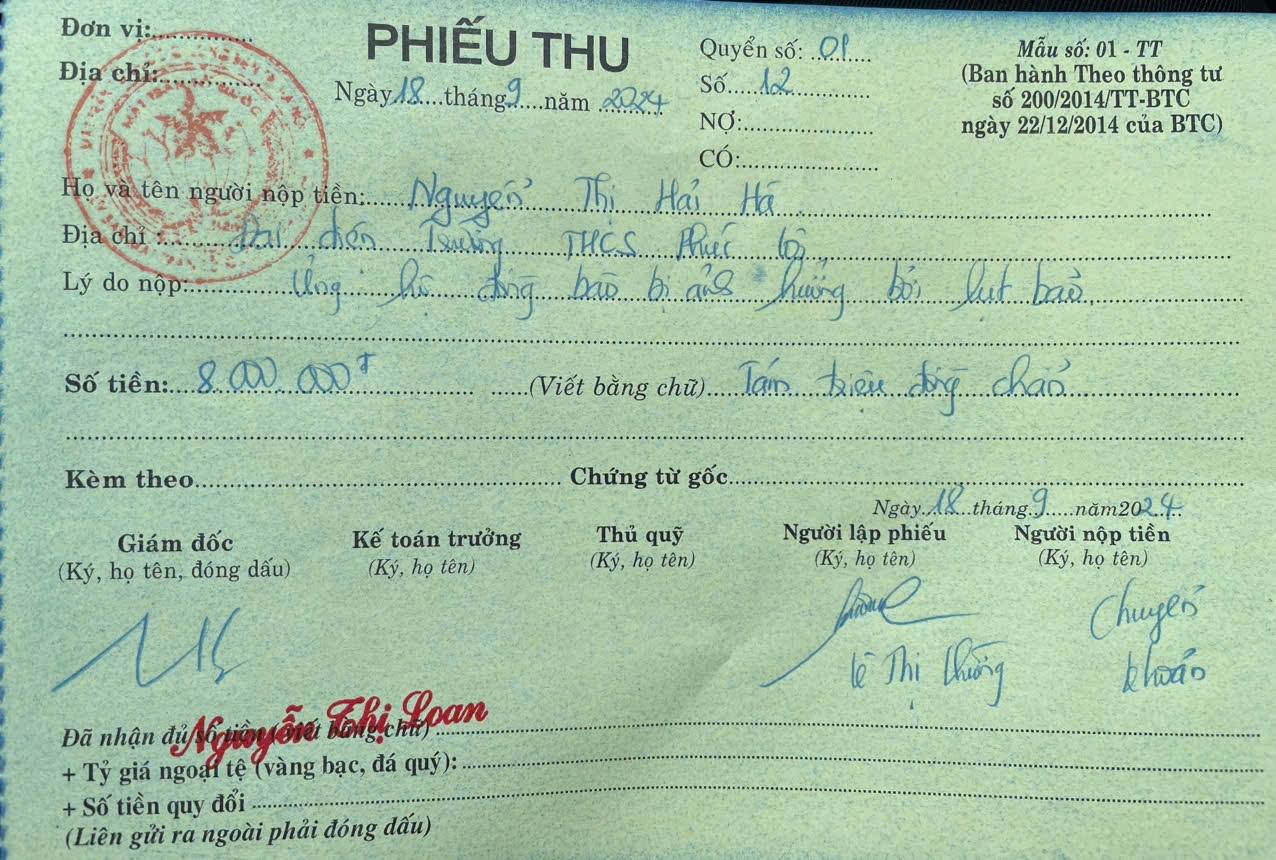 Đơn vị:
PHIẾU THU
Quyển số: 01
Mẫu số: 01 - TT
Địa chỉ:
Ngày 18 tháng 9 năm 2024
Số 12
(Ban hành Theo thông tư
số 200/2014/TT-BTC
NỢ:
ngày 22/12/2014 của BTC)
CÓ:
Họ và tên người nộp tiền: Nguyễn Thị Hải Hà
Địa chỉ : Đại diện Trường THCS Phúc
Lý do nộp: Ủng hộ đồng bào bị ảnh hưởng bởi lụt bão
Số tiền: 8.000.000đ (Viết bằng chữ) Tám triệu đồng chẵn
Kèm theo Chứng từ gốc
Ngày 18 tháng 9 năm 2024
Giám đốc Kế toán trưởng Thủ quỹ Người lập phiếu Người nộp tiền
(Ký, họ tên, đóng dấu) (Ký, họ tên) (Ký, họ tên) (Ký, họ tên) (Ký, họ tên)
Chuyển
Lê Thị khoản
Nguyễn Thị Loan
Đã nhận đủ số tiền (viết bằng chữ)
+ Tỷ giá ngoại tệ (vàng bạc, đá quý):
+ Số tiền quy đổi
(Liên gửi ra ngoài phải đóng dấu)